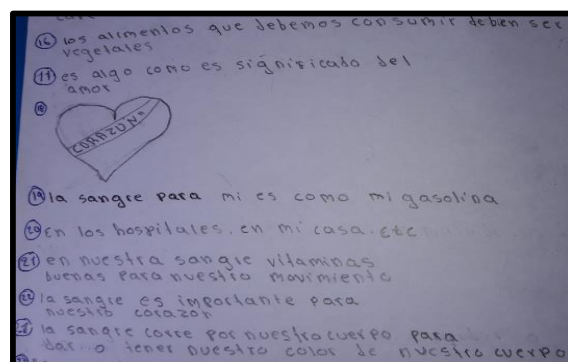 ⑯ los alimentos que debemos consumir debien ser
vegetales
⑰ es algo como es significado del
amor
⑱
CORAZON
⑲ la sangre para mi es como mi gasolina
⑳ en los hospitales. en mi casa. etc
㉑ en nuestra sangre vitaminas
buenas para nuestro movimiento
㉒ la sangre es importante para
nuestro corazón
la sangre corre por nuestro cuerpo para
dar o tener nuestro color de nuestro cuerpo